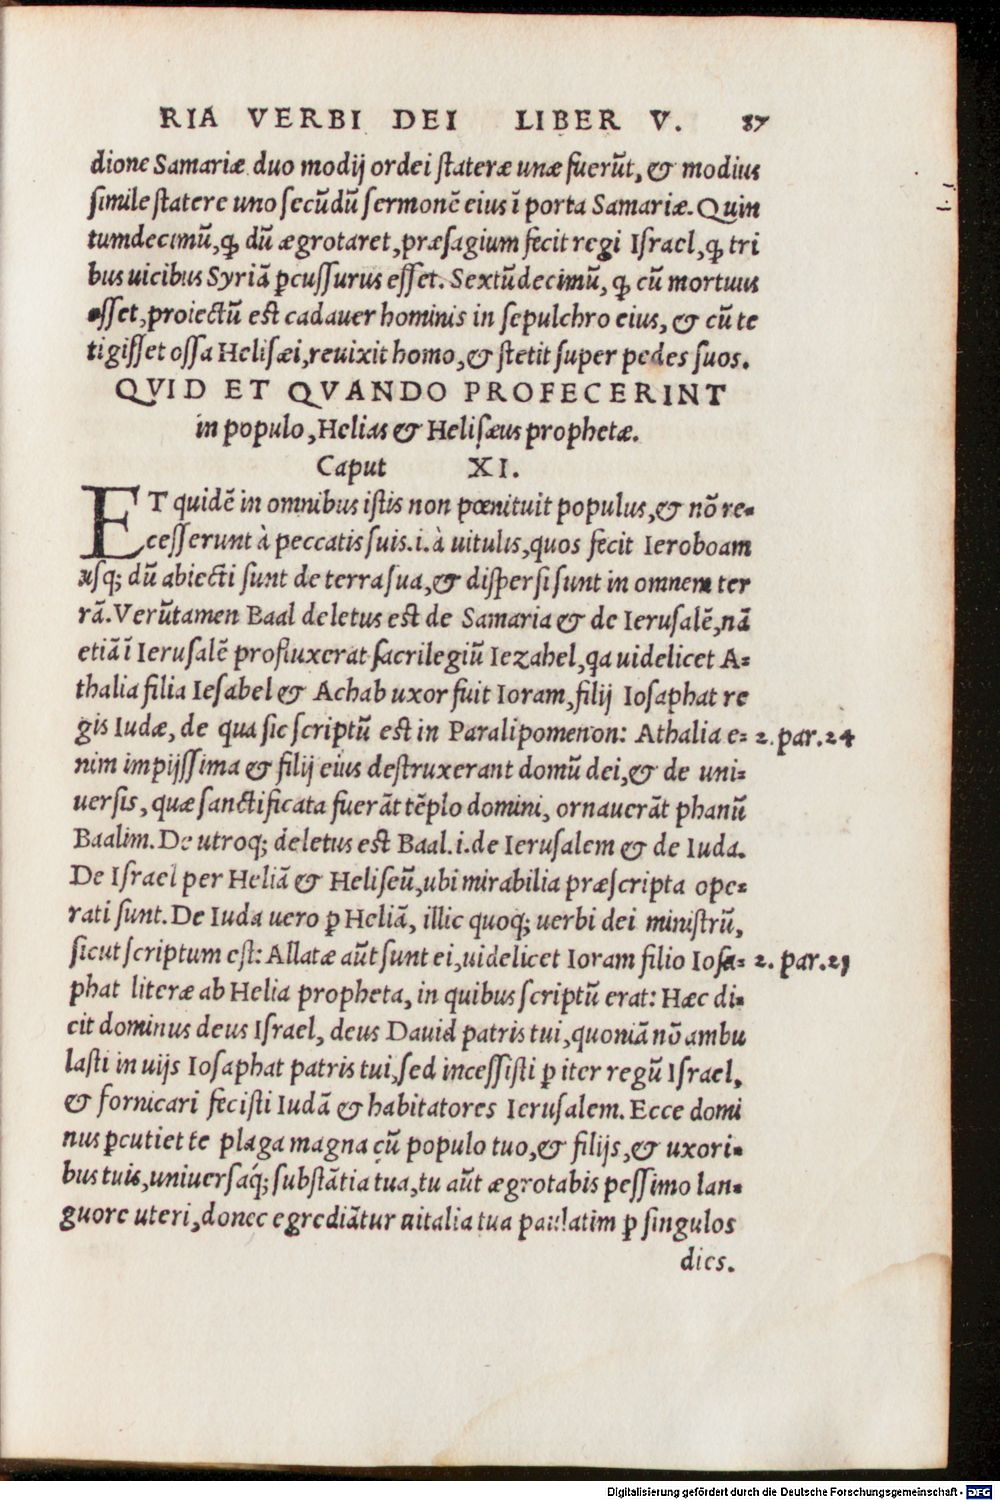 RIA VERBI DEI LIBER V. 87
dione Samariæ duo modij ordei stateræ unæ fuerũt, & modius
simile statere uno secũdũ sermonẽ eius ĩ porta Samariæ. Quin
tumdecimũ, ꝙ dũ ægrotaret, præsagium fecit regi Israel, ꝙ tri
bus uicibus Syriã ꝑcussurus esset. Sextũdecimũ, ꝙ cũ mortuus
esset, proiectũ est cadauer hominis in sepulchro eius, & cũ te
tigisset ossa Helisæi, reuixit homo, & stetit super pedes suos.
QVID ET QVANDO PROFECERINT
in populo, Helias & Helisæus prophetæ.
Caput XI.
ET quidẽ in omnibus istis non pœnituit populus, & nõ re-
cesserunt à peccatis suis .i. à uitulis, quos fecit Ieroboam
usq; dũ abiecti sunt de terra sua, & dispersi sunt in omnem ter
rã. Verũtamen Baal deletus est de Samaria & de Ierusalẽ, nã
etiã ĩ Ierusalẽ profluxerat sacrilegiũ Iezabel, qa uidelicet A-
thalia filia Iesabel & Achab uxor fuit Ioram, filij Iosaphat re
gis Iudæ, de qua sic scriptũ est in Paralipomenon: Athalia e- 2. par. 24
nim impijssima & filij eius destruxerant domũ dei, & de uni-
uersis, quæ sanctificata fuerãt tẽplo domini, ornauerãt phanũ
Baalim. De utroq; deletus est Baal .i. de Ierusalem & de Iuda.
De Israel per Heliã & Heliseũ, ubi mirabilia præscripta ope-
rati sunt. De Iuda uero ꝑ Heliã, illic quoq; uerbi dei ministrũ,
sicut scriptum est: Allatæ aũt sunt ei, uidelicet Ioram filio Iosa- 2. par. 21
phat literæ ab Helia propheta, in quibus scriptũ erat: Hæc di-
cit dominus deus Israel, deus Dauid patris tui, quoniã nõ ambu
lasti in uijs Iosaphat patris tui, sed incessisti ꝑ iter regũ Israel,
& fornicari fecisti Iudã & habitatores Ierusalem. Ecce domi
nus ꝑcutiet te plaga magna cũ populo tuo, & filijs, & uxori-
bus tuis, uniuersaq́; substãtia tua, tu aũt ægrotabis pessimo lan-
guore uteri, donec egrediãtur uitalia tua paulatim ꝑ singulos
dies.
Digitalisierung gefördert durch die Deutsche Forschungsgemeinschaft - DFG